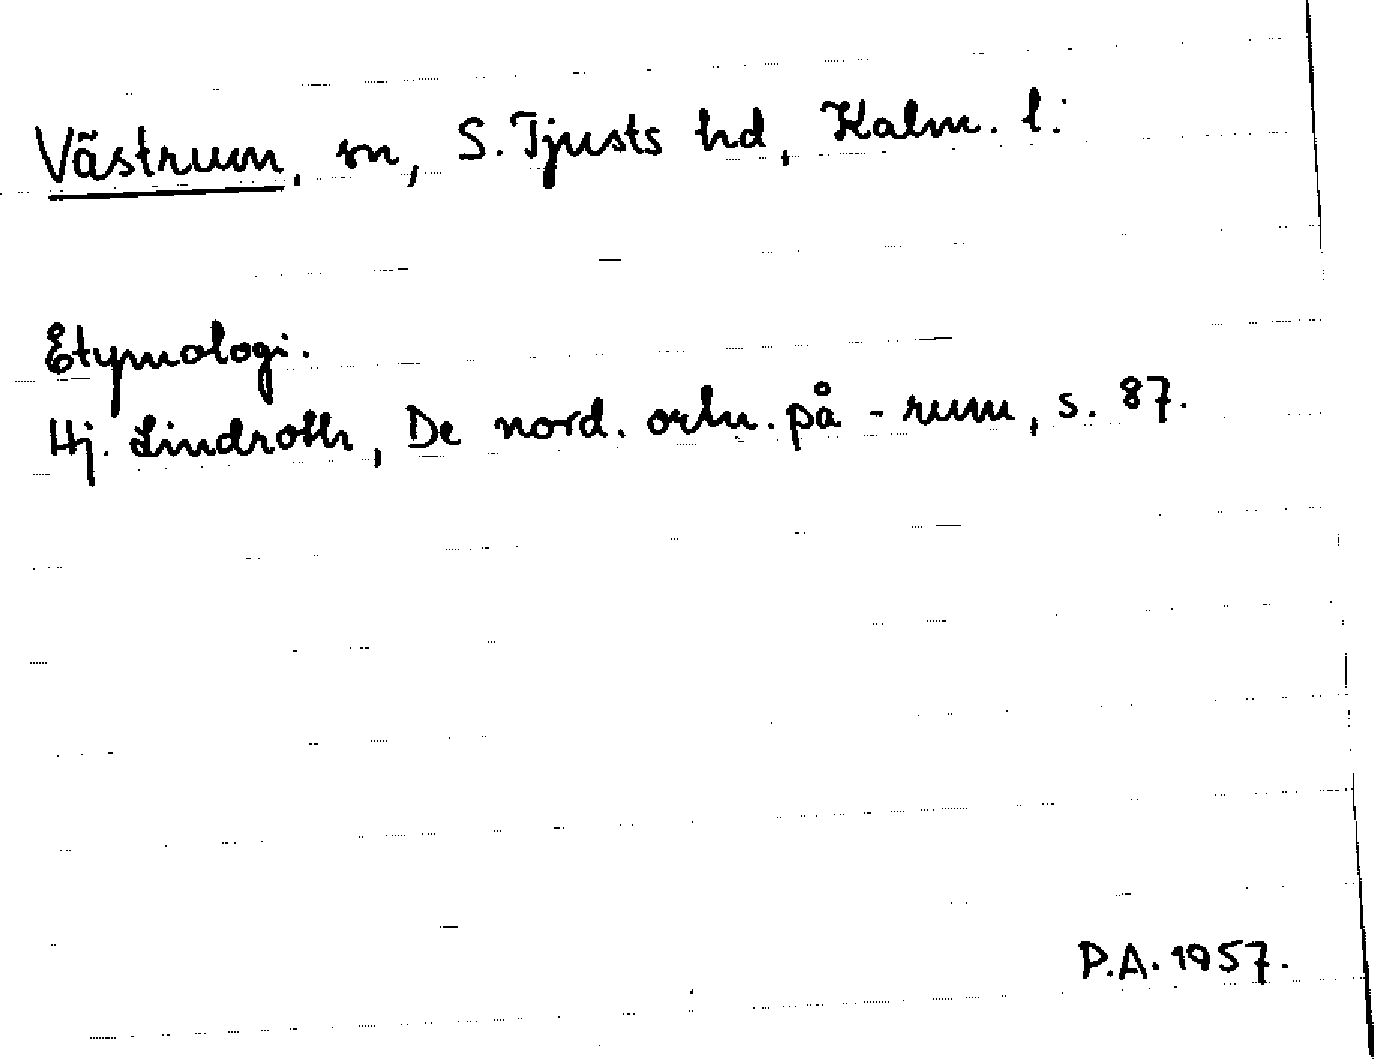 Västrum, sn, S. Tjusts hd, Kalm. l.
Etymologi.
Hj. Lindroth, De nord. ortn. på -rum, s. 87.
P.A. 1957.